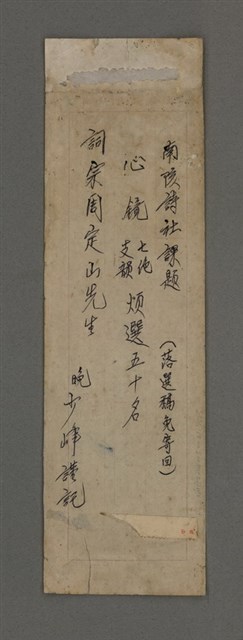 南陔詩社課題
(落選稿免寄回)
心鏡 七絕支韻 煩選五十名
詞宗周定山先生
晚少峰謹託